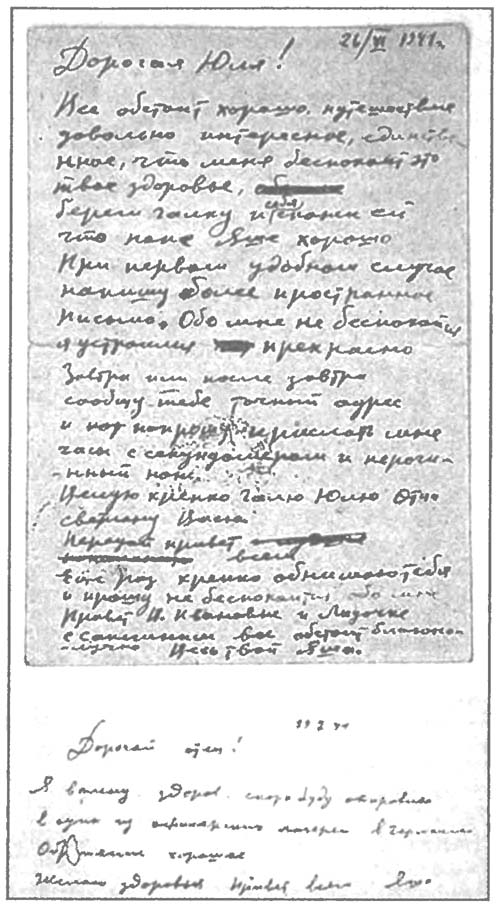 26/VI 1941 г.
Дорогая Юля!
Все обстоит хорошо. путешествие
довольно интересное, единстве-
нное, что меня беспокоит это
твое здоровье,
береги Галку и себя скажи ей
что папе Яше хорошо
При первом удобном случае
напишу более пространное
письмо. Обо мне не беспокойся
я устроился прекрасно
Завтра или после завтра
сообщу тебе точный адрес
и попрошу прислать мне
часы с секундомером и перочи-
-нный нож.
Целую крепко Галю Юлю Отца
Светлану Васю.
Передай привет всем
Ещё раз крепко обнимаю тебя
и прошу не беспокоится обо мне
Привет В. Ивановне и Лидочке
с Сапегиным все обстоит благопо-
-лучно Весь твой Яша.
Дорогой отец!
Я в плену здоров скоро буду отправлен
в один из офицерских лагерей в Германии
Обращение хорошее
Желаю здоровья Привет всем Яша